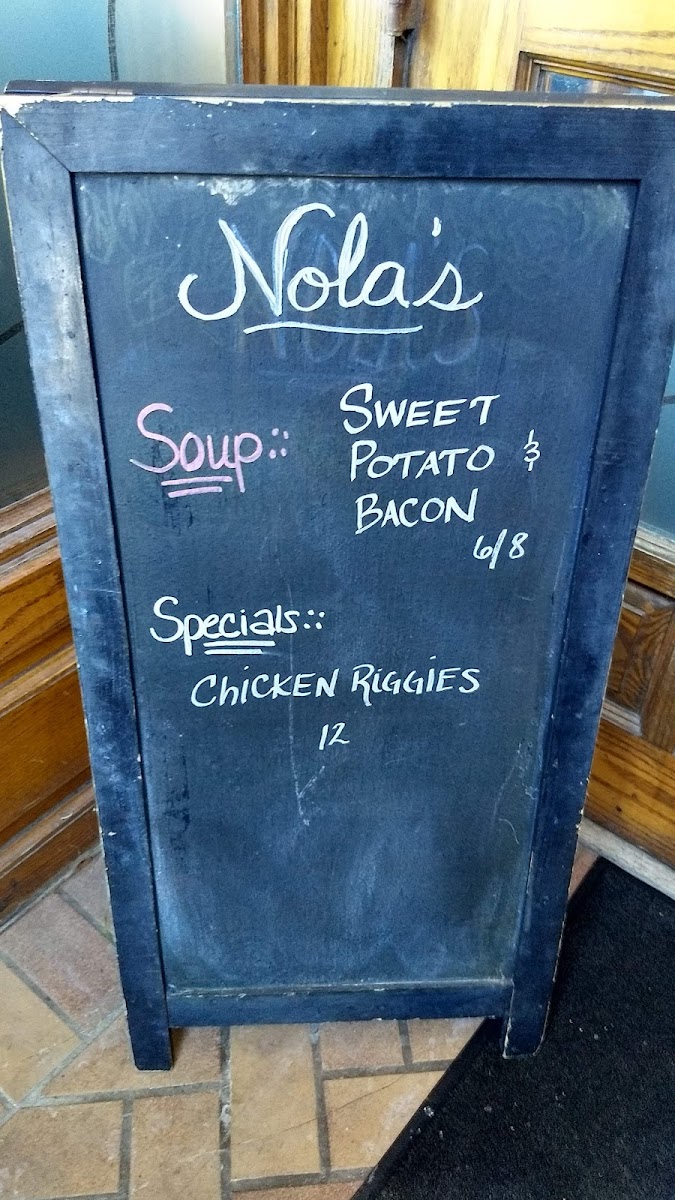 Nola's
Soup:: SWEET
POTATO &
BACON
6/8
Specials::
CHICKEN RIGGIES
12